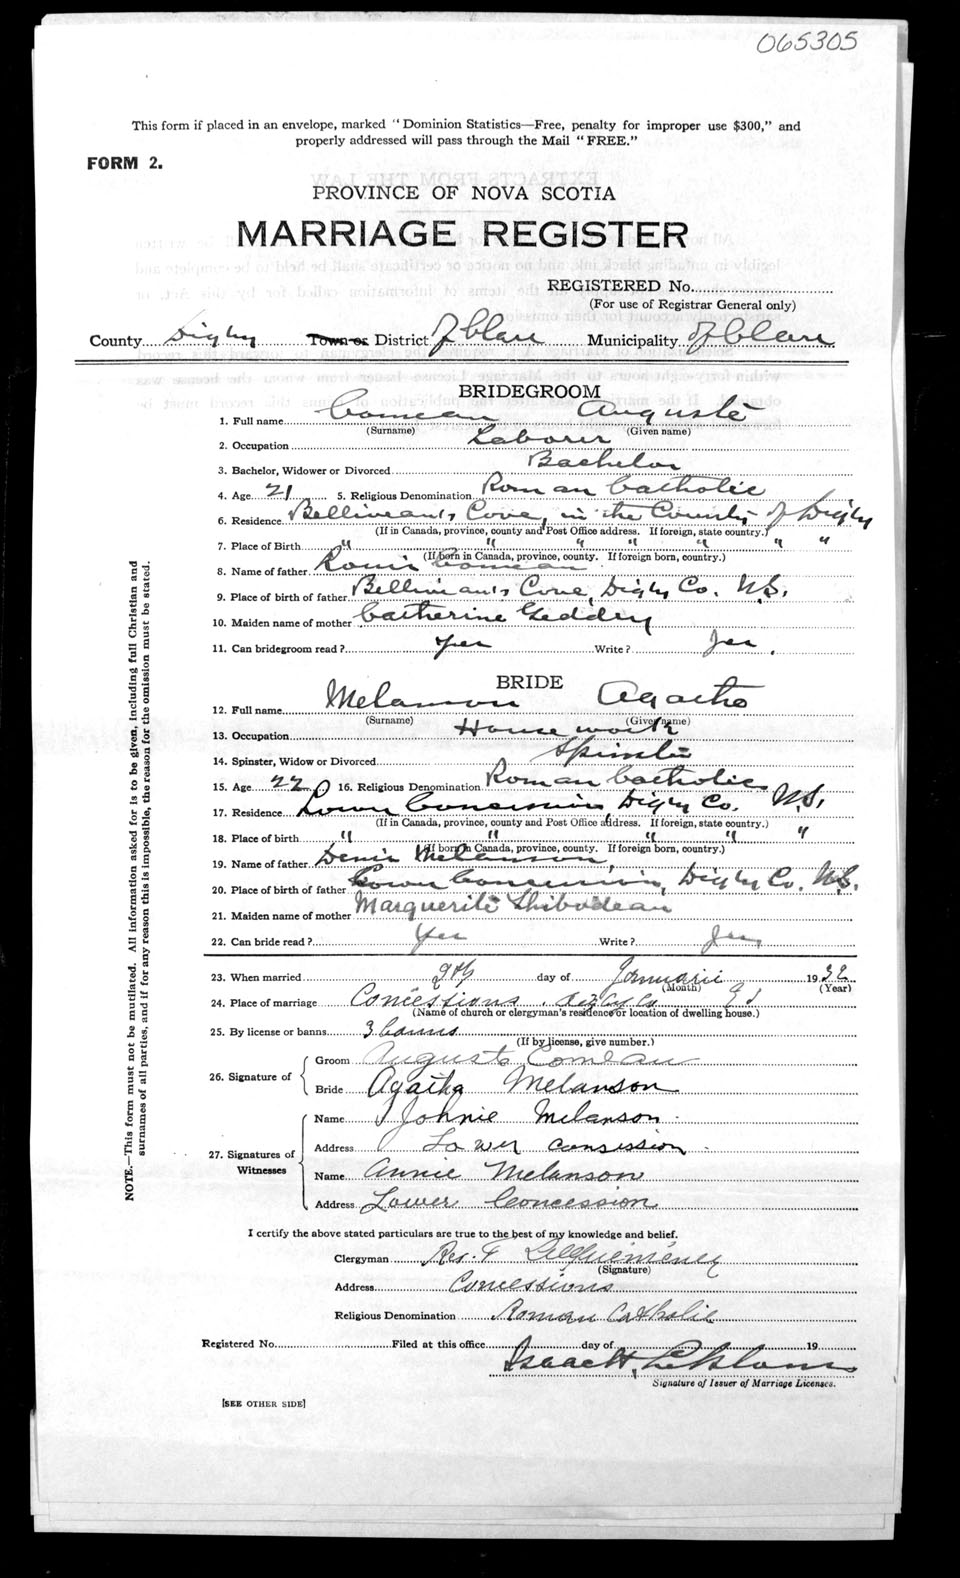 065305
This form if placed in an envelope, marked "Dominion Statistics—Free, penalty for improper use $300," and
properly addressed will pass through the Mail "FREE."
FORM 2.
PROVINCE OF NOVA SCOTIA
MARRIAGE REGISTER
REGISTERED No.
(For use of Registrar General only)
County Digby Town or District of Clare Municipality of Clare
BRIDEGROOM
1. Full name Comeau Auguste
(Surname) (Given name)
2. Occupation Laborer
3. Bachelor, Widower or Divorced Bachelor
4. Age 21 5. Religious Denomination Roman Catholic
6. Residence Belliveau's Cove, in the County of Digby
(If in Canada, province, county and Post Office address. If foreign, state country.)
7. Place of Birth " " " " " " "
(If born in Canada, province, county. If foreign born, country.)
8. Name of father Louis Comeau
9. Place of birth of father Belliveau's Cove, Digby Co. N.S.
10. Maiden name of mother Catherine Geddry
11. Can bridegroom read? Yes Write? Yes.
BRIDE
12. Full name Melanson Agatha
(Surname) (Given name)
13. Occupation House work
14. Spinster, Widow or Divorced Spinster
15. Age 22 16. Religious Denomination Roman Catholic
17. Residence Lower Concession, Digby Co. N.S.
(If in Canada, province, county and Post Office address. If foreign, state country.)
18. Place of birth " " " " "
(If born in Canada, province, county. If foreign born, country.)
19. Name of father Denis Melanson,
20. Place of birth of father Lower Concession, Digby Co. N.S.
21. Maiden name of mother Marguerite Thibodeau
22. Can bride read? Yes Write? Yes
23. When married 9th day of Januarii 1932
(Month) (Year)
24. Place of marriage Concessions. Digby Co
(Name of church or clergyman's residence or location of dwelling house.)
25. By license or banns 3 banns
(If by license, give number.)
26. Signature of Groom Auguste Comeau
Bride Agatha Melanson
27. Signatures of Witnesses Name Johnie Melanson
Address Lower Concession
Name Annie Melanson
Address Lower Concession
I certify the above stated particulars are true to the best of my knowledge and belief.
Clergyman Rev. F
(Signature)
Address Concessions
Religious Denomination Roman Catholic
Registered No. Filed at this office day of 19
Isaac H.
Signature of Issuer of Marriage Licenses.
[SEE OTHER SIDE]
NOTE.—This form must not be mutilated. All information asked for is to be given, including full Christian and
surnames of all parties, and if for any reason this is impossible, the reason for the omission must be stated.